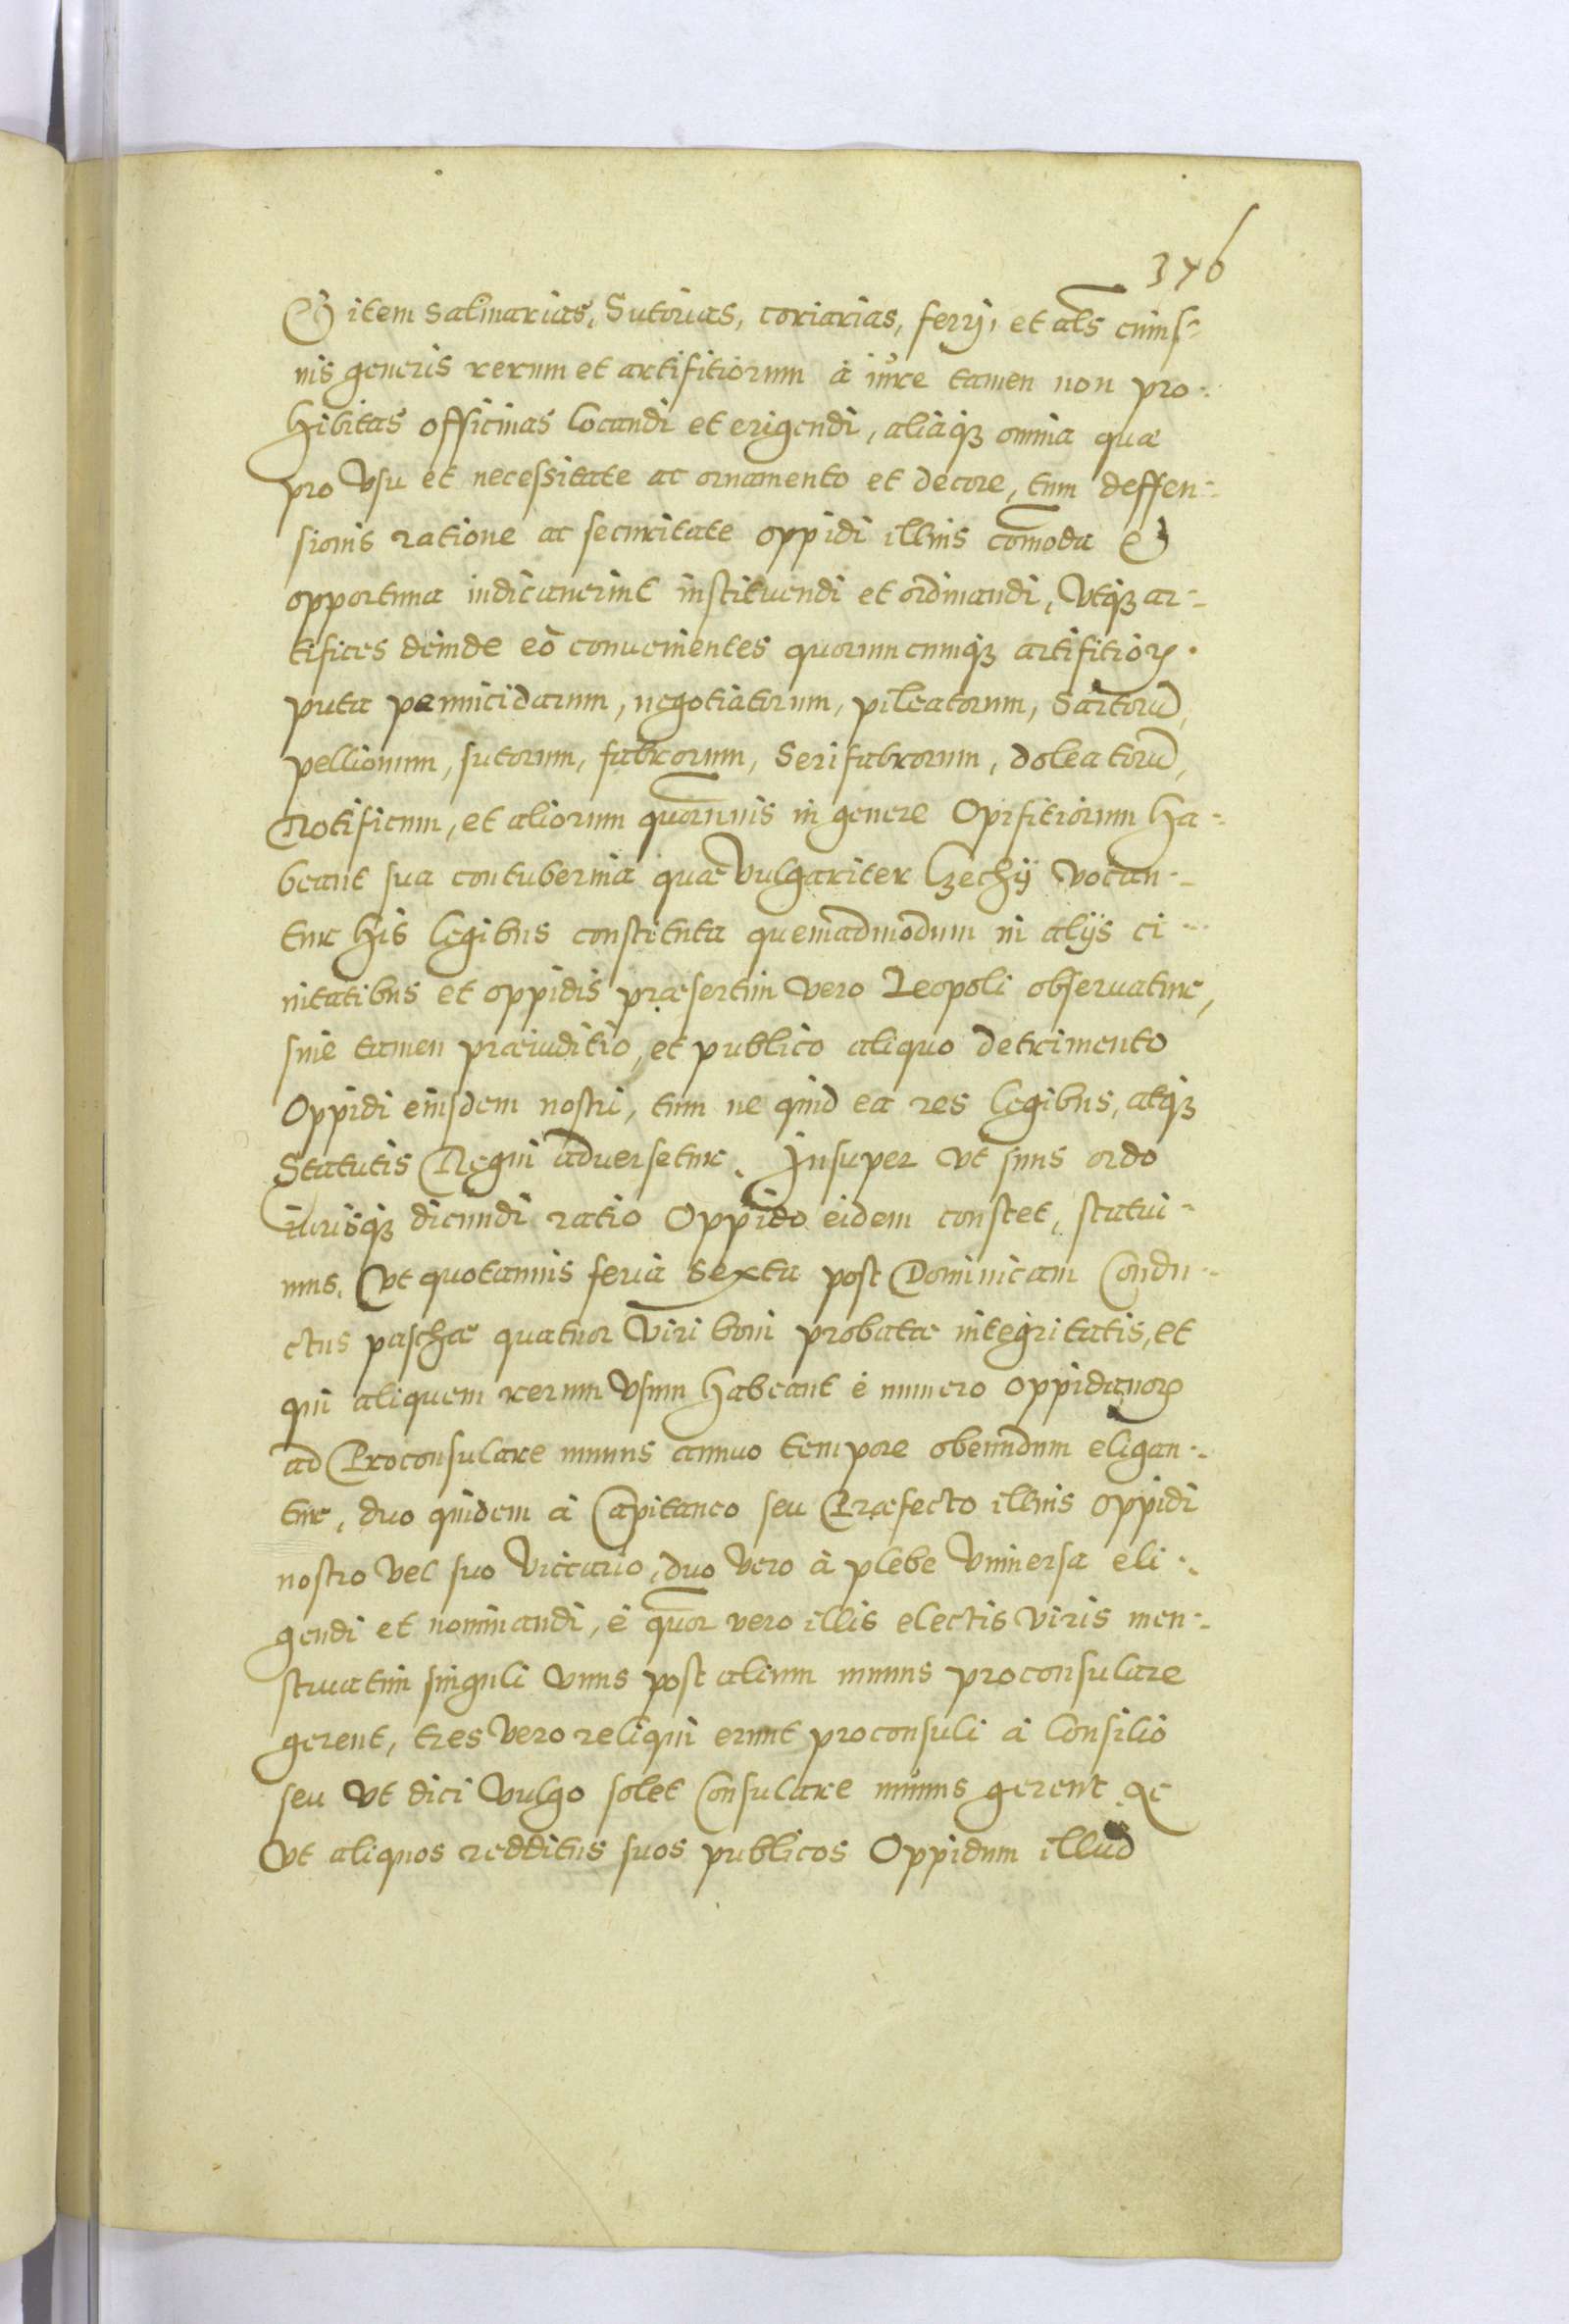 376
Et item Salinarias, Sutorias, coriarias, ferrj, et als cuius-
uis generis rerum et artifitiorum à iure tamen non pro-
hibitas officinas locandi et erigendi, aliaqꝫ omnia quæ
pro Vsu et necessitate ac ornamento et decore, tum deffen-
sionis ratione ac securitate oppidi illius comoda Et
opportuna iudicauerint instituendi et ordinandi, Vtqꝫ ar-
tifices deinde eò conuenientes quoruncumqꝫ artifitioꝝ.
puta pannicidarum, negotiatorum, pileatorum, Sartorũ,
pellionum, sutorum, fabrorum, Serifabrorum, doleatorũ,
Rotificum, et aliorum quorumuis in genere Opifitiorum Ha-
beant sua contubernia quæ Vulgariter Czechÿ Vocan-
tur His legibus constituta quemadmodum in alÿs ci-
uitatibus et oppidis præsertim Vero Leopoli obseruatur,
sine tamen præiuditio, et publico aliquo detrimento
Oppidi eiusdem nostri, tum ne quid ea res legibus, atqꝫ
Statutis Regni aduersetur. Insuper Vt suus ordo
iurisqꝫ dicundi ratio Oppido eidem constet, statui-
mus, Vt quotannis feria Sexta post Dominicam Condu-
ctus paschæ quatuor Viri boni probatæ integritatis, et
qui aliquem rerum Vsum Habeant è numero oppidanoꝝ
ad Proconsulare munus annuo tempore obeundum eligan-
tur, duo quidem à Capitaneo seu Præfecto illius oppidi
nostro Vel suo Viccario, duo Vero à plebe Vniuersa eli-
gendi et nominandi, è quor vero illis electis Viris men-
struatim singuli Vnus post alium munus proconsulare
gerent, tres Vero reliqui erunt proconsuli à Consilio
seu Vt dici Vulgo solet Consulare munus gerent. Ac
Vt aliquos redditus suos publicos Oppidum illud